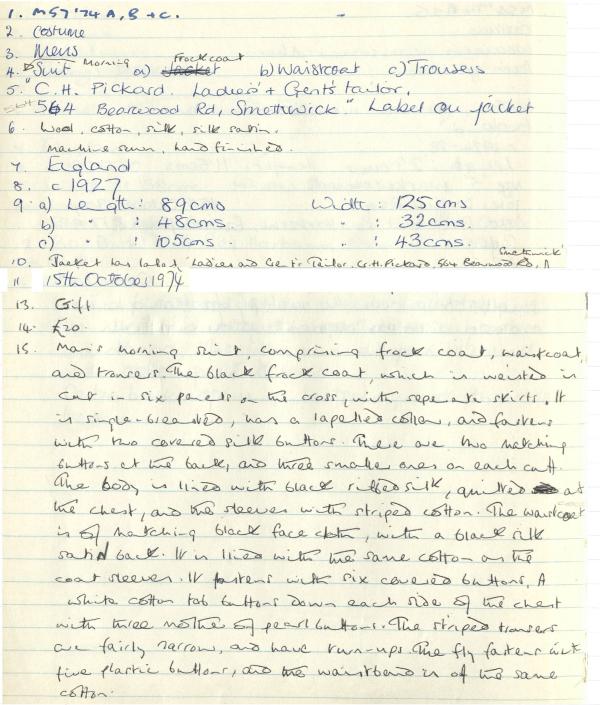 1. M57 '74 A, B + C.
2. Costume
3. Mens
4. Suit Morning a) Jacket Frock coat b) Waistcoat c) Trousers
5. "C. H. Pickard. Ladies' + Gents' tailor,
564 Bearwood Rd, Smethwick" Label on jacket
6. Wool, cotton, silk, silk satin.
Machine sewn, hand finished.
7. England
8. c 1927
9. a) Length : 89cms Width : 125 cms
b) " : 48cms. " : 32cms.
c) " : 105cms. " : 43cms.
10. Jacket has label 'Ladies and Gent's Tailor. C.H. Pickard, 564 Bearwood Rd, Smethwick'
11 15th October 1974
13. Gift
14. £20.
15. Man's morning suit, comprising frock coat, waistcoat,
and trousers. The black frock coat, which is waisted is
cut in six panels on the cross, with seperate skirts. It
is single-breasted, has a lapelled collar, and fastens
with two covered silk buttons. There are two matching
buttons at the back, and three smaller ones on each cuff.
The body is lined with black ribbed silk, quilted at
the chest, and the sleeves with striped cotton. The waistcoat
is of matching black face cloth, with a black silk
satin back. It is lined with the same cotton as the
coat sleeves. It fastens with six covered buttons. A
white cotton tab buttons down each side of the chest
with three mother of pearl buttons. The striped trousers
are fairly narrow, and have turn-ups. The fly fastens with
five plastic buttons, and the waistband is of the same
cotton.